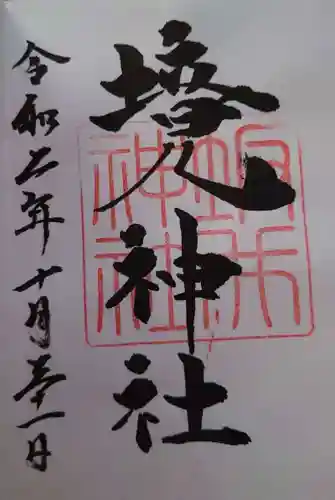 境神社
令和二年十月三十一日